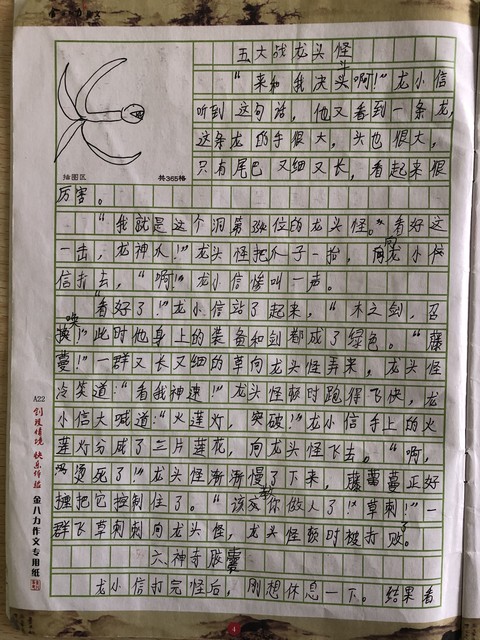 五大战龙头怪
“来和我决斗啊！”龙小信
听到这句话，他又看到一条龙，
这条龙的手很大，头也很大，
只有尾巴又细又长，看起来很
插图区
共365格
厉害。
“我就是这个洞第 位的龙头怪。看好这
一击，龙神爪！”龙头怪把爪子一抬，向龙小
信打去，“啊！”龙小信惨叫一声。
“看好了！”龙小信站了起来，“木之剑，召
唤！”此时他身上的装备和剑都成了绿色。“藤
蔓！”一群又长又细的草向龙头怪弄来，龙头怪
冷笑道：“看我神速！”龙头怪顿时跑得飞快，龙
小信大喊道：“火莲灯，突破！”龙小信手上的火
莲灯分成了三片莲花，向龙头怪飞去。“啊，
烫死了！”龙头怪渐渐慢了下来，藤蔓正好
把它控制住了。“该教你做人了！草刺！”一
群飞草刺刺向龙头怪，龙头怪顿时被打败了。
六神奇胶囊
龙小信打完怪后，刚想休息一下。结果看
A22
创设情境 快乐作文
金八力作文专用纸
4